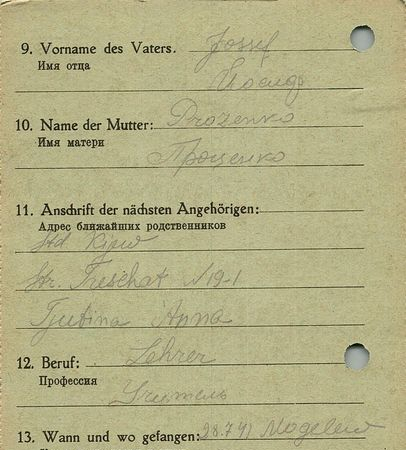 9. Vorname des Vaters. Jossif
Имя отца
Иосиф
10. Name der Mutter: Prozenko
Имя матери
Проценко
11. Anschrift der nächsten Angehörigen:
Адрес ближайших родственников
Std. Kijew
Str. Treschat N 19-1
Tjutina Anna
12. Beruf: Lehrer
Профессия
Учитель
13. Wann und wo gefangen: 28.7.41 Mogelew